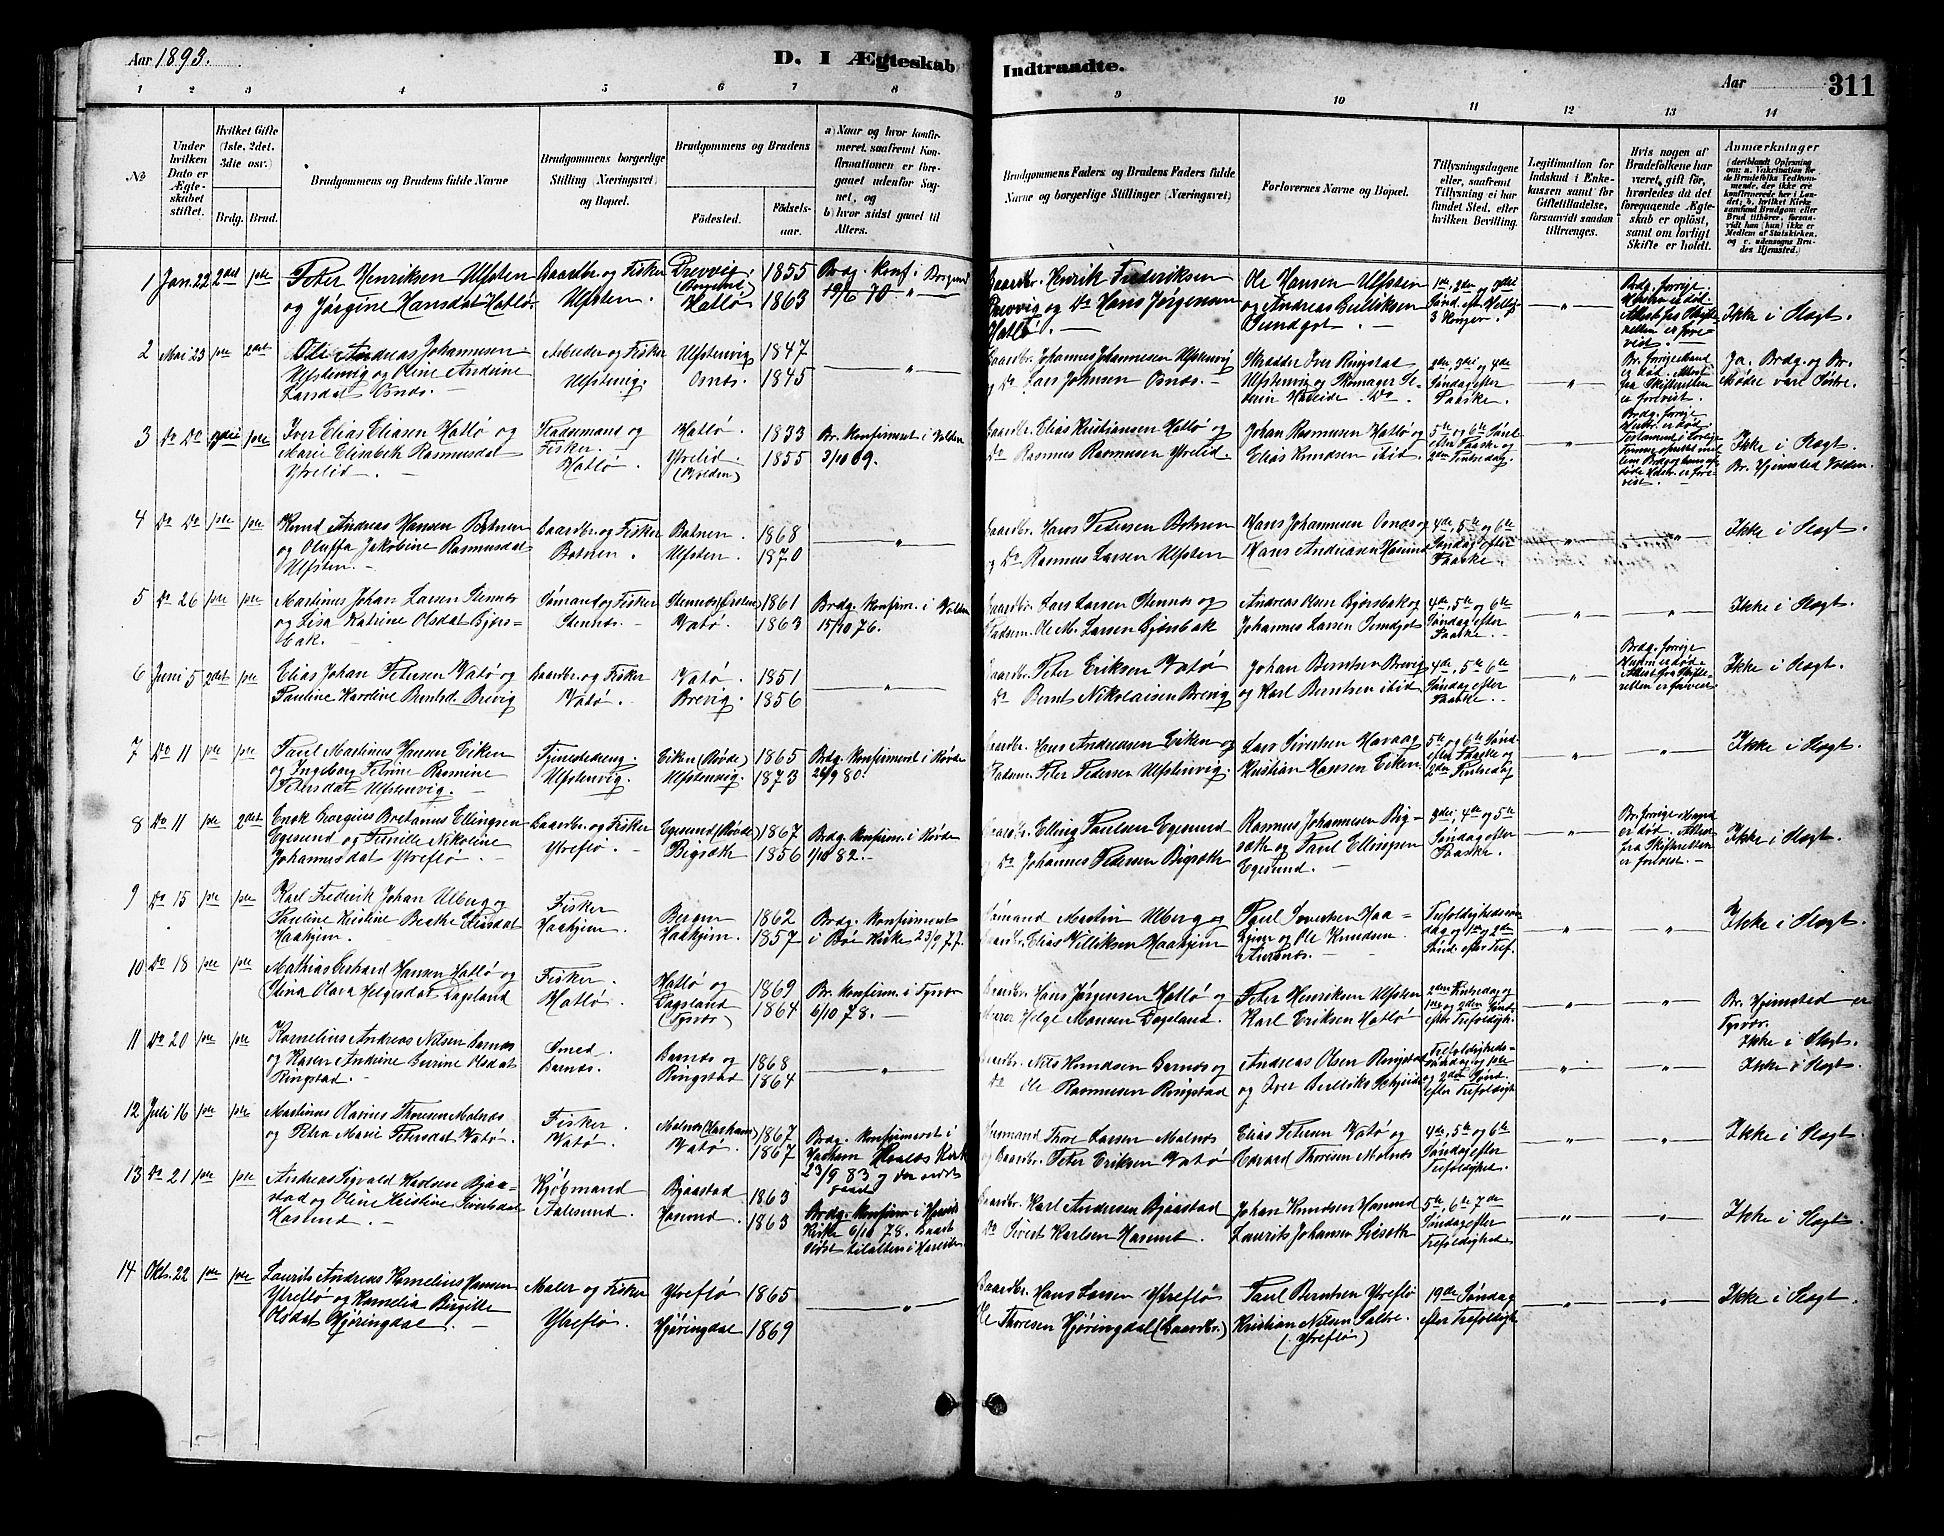 Aar 1893.
D. I Ægteskab Indtraadte.
Aar
311
1 2 3 4 5 6 7 8 9 10 11 12 13 14
No
Under hvilken Dato er Ægteskabet stiftet.
Hvilket Gifte (1ste, 2det, 3die osv.)
Brdg. Brud.
Brudgommens og Brudens fulde Navne
Brudgommens borgerlige Stilling (Næringsvei) og Bopæl.
Brudgommens og Brudens
Födested.
Födselsaar.
a) Naar og hvor konfirmeret, saafremt Konfirmationen er foregaaet udenfor Sognet, og
b) hvor sidst gaaet til Alters.
Brudgommens Faders og Brudens Faders fulde Navne og borgerlige Stillinger (Næringsvei)
Forlovernes Navne og Bopæl.
Tillysningsdagene eller, saafremt Tillysning ei har fundet Sted, efter hvilken Bevilling.
Legitimation for Indskud i Enkekassen samt for Giftetilladelse, forsaavidt saadan tiltrænges.
Hvis nogen af Brudefolkene har været gift før, hvorledes da det foregaaende Ægteskab er oplöst, samt om lovligt Skifte er holdt.
Anmærkninger
1 Jan. 22 2det 1ste
Peter Henriksen Ulfsten
og Jørgine Hansdat Hatlø.
Gaardbr. og Fisker
Ulfsten.
Brevvig (Borgund)
Hatlø
1855
1863
Brdg. Konf. i Borgund
29/6 70 "
Gaardbr. Henrik Frederiksen
Brevvig og Do Hans Jørgensen
Hatlø.
Ole Hansen Ulfsten
og Andreas Velliksen
Sundgot.
Brdg. forrige
Hustru er død.
Ikke i Slægt.
2 Mai 23 1ste 2det
Ole Andreas Johannesen
Ulfstenvig og Oline Andrine
Larsdat Osnæs.
Arbeider og Fisker
Ulfstenvig.
Ulfstenvig
Osnæs.
1847
1845
"
Gaardbr. Johannes Johannesen Ulfstenvig
og Do Lars Johnsen Osnæs.
Skrædder Iver Ringstad
Ulfstenvig og
2den, 3die og 4de
Søndag efter
Paaske.
"
Ja. Brdg. og Br.
Mødre var Søstre.
3 Do Do 3die 1ste
Iver Elias Eliasen Hatlø og
Marie Elisabeth Rasmusdat
Ytrelid.
Pladsmand og
Fisker.
Hatlø.
Hatlø
Ytrelid.
(Volden)
1833
1855
Br. Konfirmeret i Volden
3/10 69.
Gaardbr. Elias Kristiansen Hatlø og
Do Rasmus Rasmussen Ytrelid.
Johan Rasmussen Hatlø og
Elias Knudsen ibid.
5te og 6te Sønd.
efter Paaske og
2den Pintsedag.
"
Ikke i Slægt
Br. Hjemsted Volden.
4 Do Do 1ste 1ste
Knud Andreas Hansen Botnen
og Oluffa Jakobine Rasmusdat
Ulfsten.
Gaardbr. og Fisker
Botnen.
Botnen.
Ulfsten
1868
1870
"
Gaardbr. Hans Pedersen Botnen
og Do Rasmus Larsen Ulfsten
Hans Johannesen Osnæs og
Hans Andreasen Hasund
4de, 5te og 6te
Søndag efter
Paaske.
" "
Ikke i Slægt.
5 Do 26 1ste 1ste
Martinus Johan Larsen Stennæs
og Lisa Katrine Olsdat Bjørs-
bak.
Sømand og Fisker
Stennæs.
Stennæs (Ørsten)
Vatø.
1861
1863
Brdg. Konfirm. i Volden
15/10 76.
Gaardbr. Lars Larsen Stennæs og
Pladsm. Ole M. Larsen Bjørsbak
Andreas Olsen Bjørsbak og
Johannes Larsen Sundgot
4de, 5te og 6te
Søndag efter
Paaske.
" "
Ikke i Slægt.
6 Juni 5 2det 1ste
Elias Johan Petersen Vatø og
Pauline Karoline Berntsd. Brevig
Gaardbr. og Fisker
Vatø.
Vatø.
Brevig.
1851
1856
"
Gaardbr. Peter Eriksen Vatø
Do Bernt Nikolaisen Brevig
Johan Berntsen Brevig
og Karl Berntsen ibid.
4de, 5te 6te
Søndag efter
Paaske.
"
Brdg. forrige
Hustru er død.
Attest fra Skifte-
retten er forevist.
Ikke i Slægt.
7 Do 11 1ste 1ste
Paul Martinus Hansen Eiken
og Ingeborg Petrine Rasmine
Petersdat Ulfstenvig.
Tjenestedreng.
Ulfstenvig.
Eiken (Røvde)
Ulfstenvig.
1865
1873
Brdg. Konfirmeret i Røvde
26/9 80.
Gaardbr. Hans Andreasen Eiken og
Pladsm. Peter Pedersen Ulfstenvig.
Lars Sivertsen Havaag
Kristian Hansen Eiken.
5te og 6te Sønd.
efter Paaske og
2den Pintsedag
" "
Ikke i Slægt.
8 Do 11 1ste 2det
Enok Georgius Bretanus Ellingsen
Egesund og Pernille Nikoline
Johannesdat Ytreflø.
Gaardbr. og Fisker
Ytreflø.
Egesund (Røvde)
Bigsæth
1867
1856
Brdg. Konfirm. i Røvde
1/10 82.
Gaardbr. Elling Paulsen Egesund
og Do Johannes Pedersen Bigsæth
Rasmus Johannesen Big-
sæth og Paul Ellingsen
Egesund.
3die, 4de og 5te
Søndag efter
Paaske.
"
Br. forrige Mand
er død. Attest
fra Skifteretten
er forevist.
Ikke i Slægt.
9 Do 15 1ste 1ste
Karl Frederik Johan Ulberg og
Pauline Kristine Beathe Eliasdat
Haakjem.
Fisker
Haakjem.
Bergen
Haakjem.
1862
1857
Brdg. Konfirmeret
i Bø Kirke 23/9 77.
Sømand Martin Ulberg og
Gaardbr. Elias Villiksen Haakjem
Paul Sivertsen Haa-
kjem og Ole Knudsen
Trefoldigheds-
dag og 1ste og 2den
Sønd. efter Tref.
" "
Ikke i Slægt.
10 Do 18 1ste 1ste
Mathias Gerhard Hansen Hatlø og
Stina Olava Helgesdat Dagsland
Fisker.
Hatlø.
Hatlø og
Dagsland
(Tysvær)
1869
1864
Br. Konfirm. i Tysvær
6/10 78.
Gaardbr. Hans Jørgensen Hatlø og
Helge Monsen Dagsland.
Peter Henriksen Ulfsten
Karl Eriksen Hatlø
2den Pintsedag og
1ste og 2den Sønd.
efter Trefoldigh.
" "
Br. Hjemsted er
Tysvær.
Ikke i Slægt.
11 Do 20 1ste 1ste
Kornelius Andreas Nilsen Garnæs
og Karen Andrine Severine Olsdat
Ringstad.
Smed.
Garnæs.
Garnæs og
Ringstad
1868
1864
"
Gaardbr. Nils Knudsen Garnæs og
Do Ole Rasmussen Ringstad
Andreas Olsen Ringstad
Trefoldigheds-
søndag og 1ste
og 2den Sønd.
efter Trefoldigh.
" "
Ikke i Slægt.
12 Juli 16 1ste 1ste
Martinus Olavius Thoresen Molnæs
og Petra Marie Petersdat Vatø.
Fisker.
Vatø.
Molnæs (Haram)
Vatø.
1867
1867
Brdg. Konfirmeret i
23/9 83
Thore Larsen Molnæs
og Gaardbr. Peter Eriksen Vatø
Elias Petersen Vatø og
Edvard Thoresen Molnæs
4de, 5te og 6te
Søndag efter
Trefoldighed.
" "
Ikke i Slægt.
13 Do 21 1ste 1ste
Andreas Sigvald Karlsen Bjaa-
stad og Oline Kristine Sivertsdat
Hasund.
Kjøbmand
Aalesund.
Bjaastad
Hasund.
1863
1863
Brdg. Konfirm. i
Kirke 6/10 78.
Gaardbr. Karl Andersen Bjaastad
Do Sivert Karlsen Hasund.
Johan Knudsen Hasund
Laurits Johansen
5te, 6te 7de
Søndag efter
Trefoldighed.
" "
Ikke i Slægt.
14 Okt. 22 1ste 1ste
Laurits Andreas Kornelius Hansen
Ytreflø og Kornelia Birgitte
Olsdat Hjøringdal.
Maler og Fisker
Ytreflø.
Ytreflø
Hjøringdal
1865
1869
"
Gaardbr. Hans Larsen Ytreflø
Ole Thoresen Hjøringdal (Gaardbr.)
Paul Berntsen Ytreflø
Kristian Nilsen Sætre.
(Ytreflø)
19de Søndag
efter Trefoldigh.
" "
Ikke i Slægt.